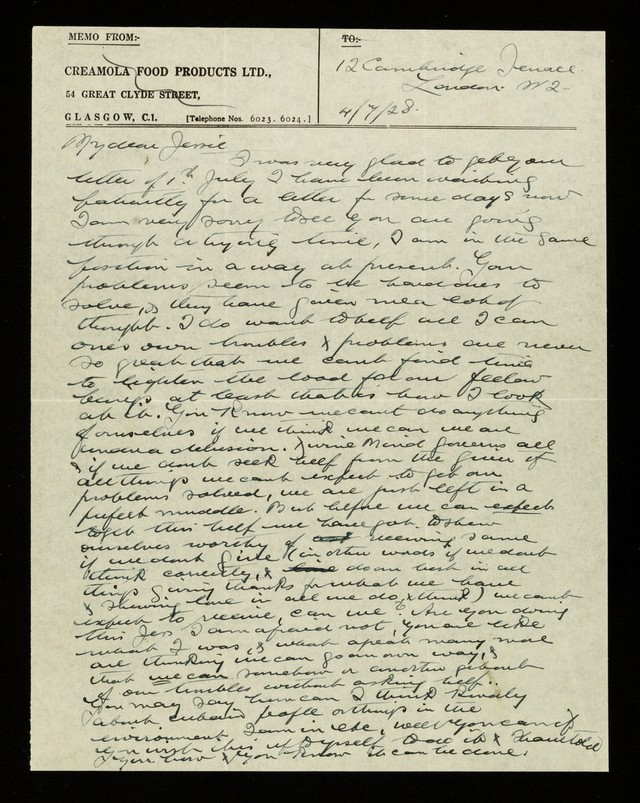 MEMO FROM:-
TO:-
CREAMOLA FOOD PRODUCTS LTD.,
54 GREAT CLYDE STREET,
GLASGOW, C.1. [Telephone Nos. 6023. 6024.]
12 Cambridge Terrace
London. W2-
4/7/28.
My dear Jessie
I was very glad to get your
letter of 1st July I have been waiting
patiently for a letter for some days now
I am very sorry to see you are going
through a trying time, I am in the same
position in a way at present. Your
problems seem to be hard ones to
solve, & they have given me a lot of
thought. I do want to help all I can
ones own troubles & problems are never
so great that we cant find time
to lighten the load for our fellow
beings at least that is how I look
at it. You know we cant do anything
of ourselves if we think we can we are
under a delusion. Divine Mind governs all
& if we dont seek help from the giver of
all things we cant expect to get our
problems solved, we are just left in a
perfect muddle. But before we can expect
to get this help we have got to show
ourselves worthy of receiving same
if we dont give (in other words if we dont
think correctly, & do our best in all
things giving thanks for what we have
& showing love in all we do, & think) we cant
expect to receive, can we? Are you doing
this Jess, I am afraid not, you are like
what I was, & what a great many more
are thinking we can go our own way, &
that we can somehow or another get out
of our troubles without asking help.
You may say how can I think kindly
about people or things in the
environment I am in etc, well you can if
you wish this is up to yourself to do it & I have told
you how & you know it can be done.